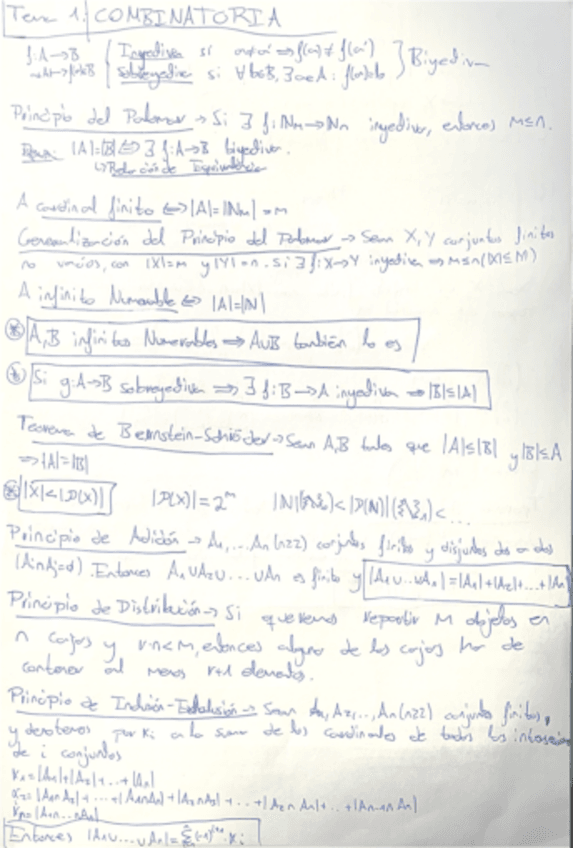 Tema 1: COMBINATORIA
f: A→B { Inyectiva si a≠a' ⟹ f(a)≠f(a') } Biyectiva
Sobreyectiva si ∀b∈B, ∃a∈A : f(a)=b
Principio del Palomar → Si ∃ f: ℕm→ℕn inyectiva, entonces m≤n.
|A|=|B| ⟺ ∃ f: A→B biyectiva.
↳ Relación de Equivalencia
A cardinal finito ⟺ |A|=|ℕm| = m
Generalización del Principio del Palomar → Sean X, Y conjuntos finitos
no vacíos, con |X|=m y |Y|=n. Si ∃ f: X→Y inyectiva ⟹ m≤n
A infinito Numerable ⟺ |A|=|ℕ|
A, B infinitos Numerables ⟹ A∪B también lo es
Si g: A→B sobreyectiva ⟹ ∃ f: B→A inyectiva ⟹ |B|≤|A|
Teorema de Bernstein-Schröder → Sean A, B tales que |A|≤|B| y |B|≤A
⟹ |A|=|B|
|X|<|P(X)| |P(X)| = 2^m |ℕ| < |P(ℕ)| < ...
Principio de Adición → A₁, ... An (n≥2) conjuntos finitos y disjuntos dos a dos
(Ai∩Aj=∅). Entonces A₁∪A₂∪...∪An es finito y |A₁∪...∪An| = |A₁|+|A₂|+...+|An|
Principio de Distribución → Si queremos repartir m objetos en
n cajas y r·n<m, entonces alguna de las cajas ha de
contener al menos r+1 elementos.
Principio de Inclusión-Exclusión → Sean A₁, A₂, ..., An (n≥2) conjuntos finitos,
y denotemos por αi a la suma de los cardinales de todas las
de i conjuntos
α₁ = |A₁|+|A₂|+...+|An|
α₂ = |A₁∩A₂|+...+|A₁∩An|+|A₂∩A₃|+...+|A₂∩An|+...+|An-₁∩An|
αn = |A₁∩...∩An|
Entonces |A₁∪...∪An| =